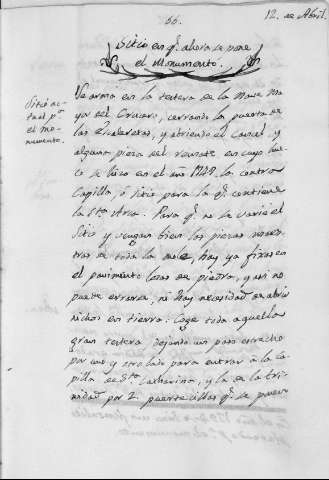 66.
12. de Abril.
Sitio en q.e ahora se pone
el Monumento.
Sitio ac-
tual p.a
el mo-
numento.
Se arma en la testera de la Nave Ma-
yor del Crucero, cerrando la puerta de
las Escaleretas, y abriendo el Cancel, y
alguna pieza del remate en cuyo hue-
co se hizo en el año 1749. la contra
Capilla, ó sitio para la q.e contiene
la S.ta Arca. Para q.e no se varie el
sitio y vengan bien las piezas maes-
tras de toda la mole, hay ya fixas en
el pavimento losas de piedra, y asi no
puede errarse, ni hay necesidad de abrir
nichos en tierra. Coge toda aquella
gran testera, dejando un paso estrecho
por uno y otro lado para entrar a la Ca-
pilla de S.ta Catharina, y la de la Tri-
nidad por 2. puertecillas q.e se pueden